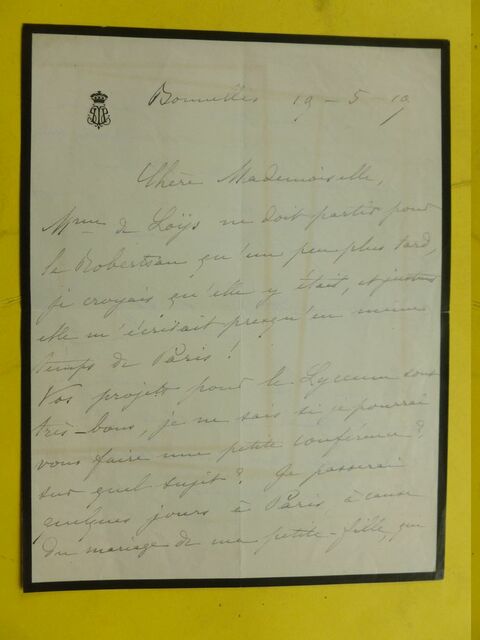 Bonnelles 19 - 5 - 19
Chère Mademoiselle,
Mme de Loÿs ne doit partir pour
la Robertsau qu'un peu plus tard,
je croyais qu'elle y était, et justement
elle m'écrivait presqu'en même
temps de Paris !
Vos projets pour le Lyceum sont
très-bons, je ne sais si je pourrai
vous faire une petite conférence ?
sur quel sujet ? Je passerai
quelques jours à Paris, à cause
du mariage de ma petite-fille, qui